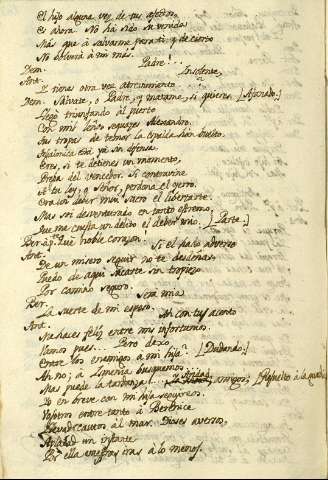 El hijo alguna vez de tus afectos,
Es ahora. No ha sido su venida
Más que á salvarme para ti y de cierto
No volverá á mi más.
Dem. Padre!
Ant. Insolente,
Y tienes otra vez atrevimiento
Dem. Salvate, o Padre, y matame, si quieres. [Afanado.]
Llegó triunfando al puerto
Con mis leños sequaces Alexandro.
Sus tropas de temor la huida han buelto.
Salamina está ya sin defensa.
Eres, si te detienes un momento,
Presa del vencedor. Si contravine
Á tu ley, o Señor, perdona el yerro.
Era un deber más sacro el libertarte.
Mas soi desventurado en tanto estremo,
Que me cuesta un delito el deber mio. [Parte.]
Ber. ap. Qué noble corazon!
Ant. Si el hado adverso
De un misero seguir no te desdeñas
Puedo de aqui sacarte sin tropiezo
Por camino seguro.
Ber. Será mia
La suerte de mi esposo.
Ant. Ah con tu acento
Me haces feliz entre mis infortunios.
Vamos pues... Pero dexo
Entre los enemigos á mi hija? [Dudando.]
Ah no; á Ismenia busquemos.
Mas puede la tardanza! Andad, amigos; [Resuelto á la guardia]
Yo en breve con mi hija seguiremos.
Vosotros entre tanto á Berenice
Llevad cautos al mar. Dioses aversos,
Piedad un instante
Por ella unqᵉ no, mas á lo menos.